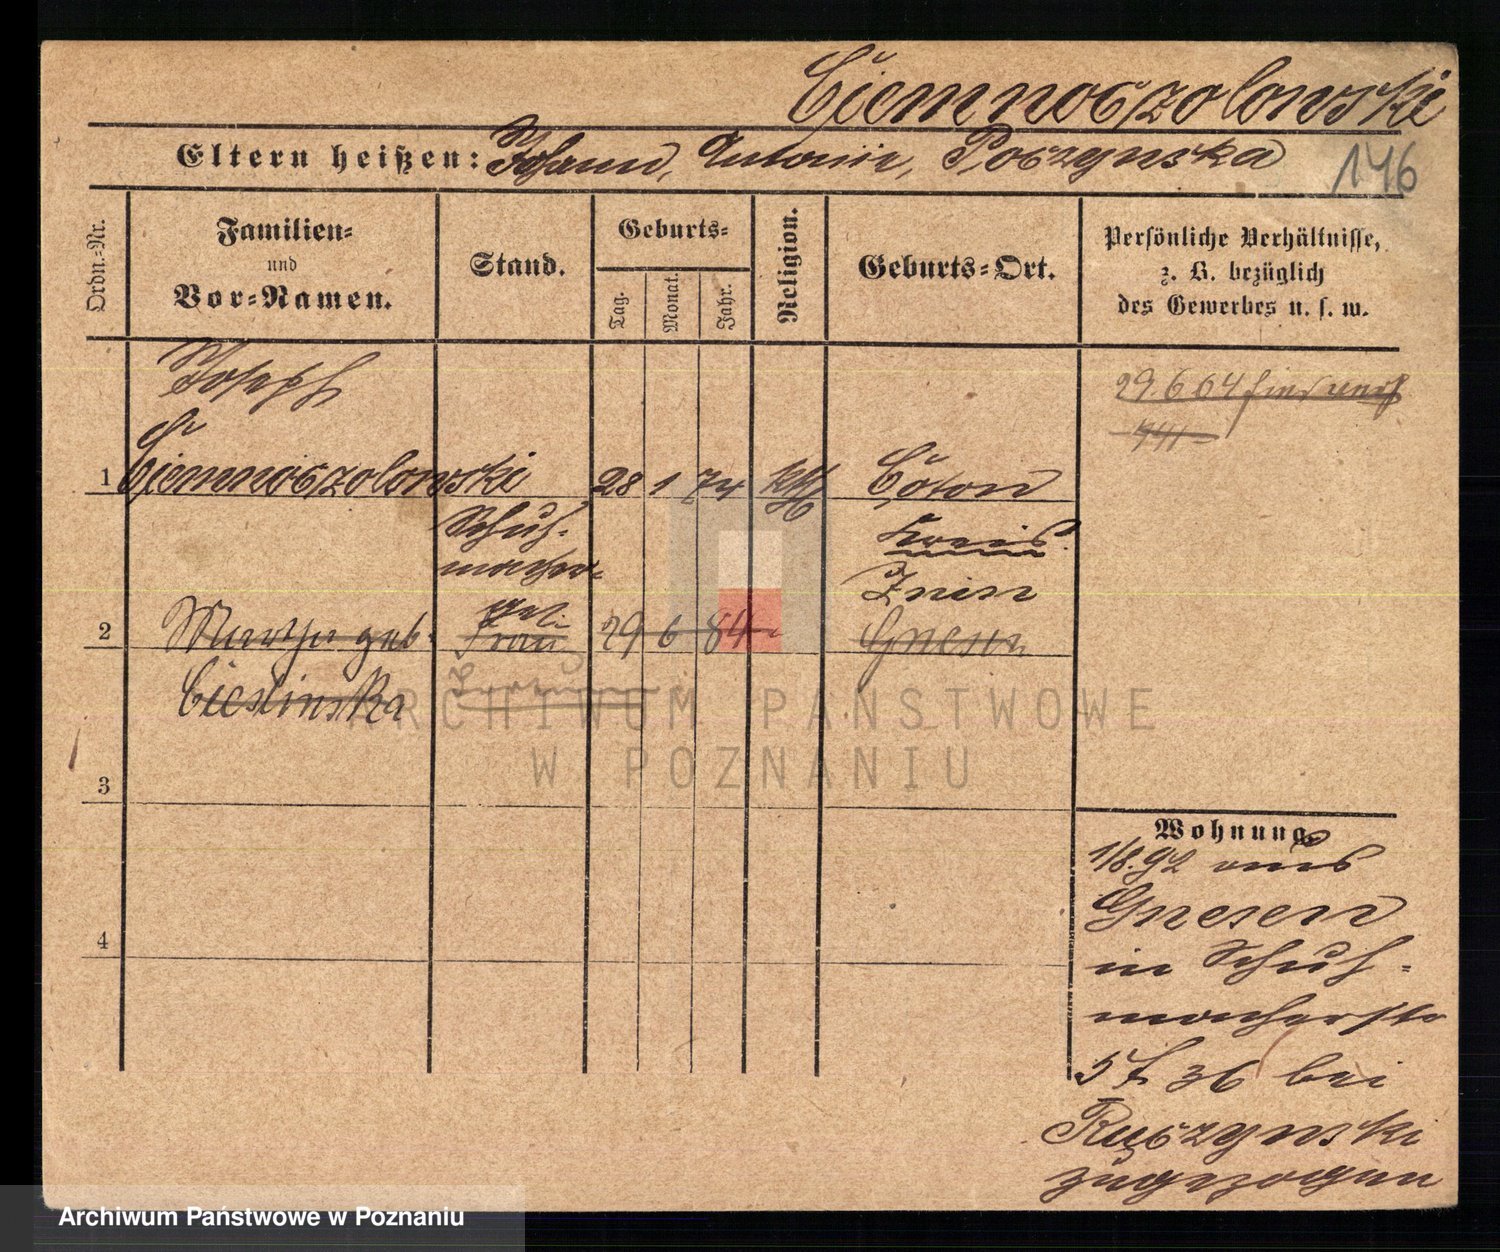 Ciemnoczolowski
Eltern heißen: Johann, Antonie, Poczynska
146
Ordn.-Nr.
Familien-
und
Vor-Namen.
Stand.
Geburts-
Tag.
Monat.
Jahr.
Religion.
Geburts-Ort.
Persönliche Verhältnisse,
z. B. bezüglich
des Gewerbes u. s. w.
Joseph
29. 6 64
1 Ciemnoczolowski 28 1 74 kth
Schuh-
macher
Kreis
Znin
2 Martha geb. Frau 29 6 84 Gnesen
Cieslinska
3
4
Wohnung
1/8. 92 aus
Gnesen
in Schuh-
macherstr
bei
Ruczynski
zugezogen
ARCHIWUM PAŃSTWOWE
W POZNANIU
Archiwum Państwowe w Poznaniu